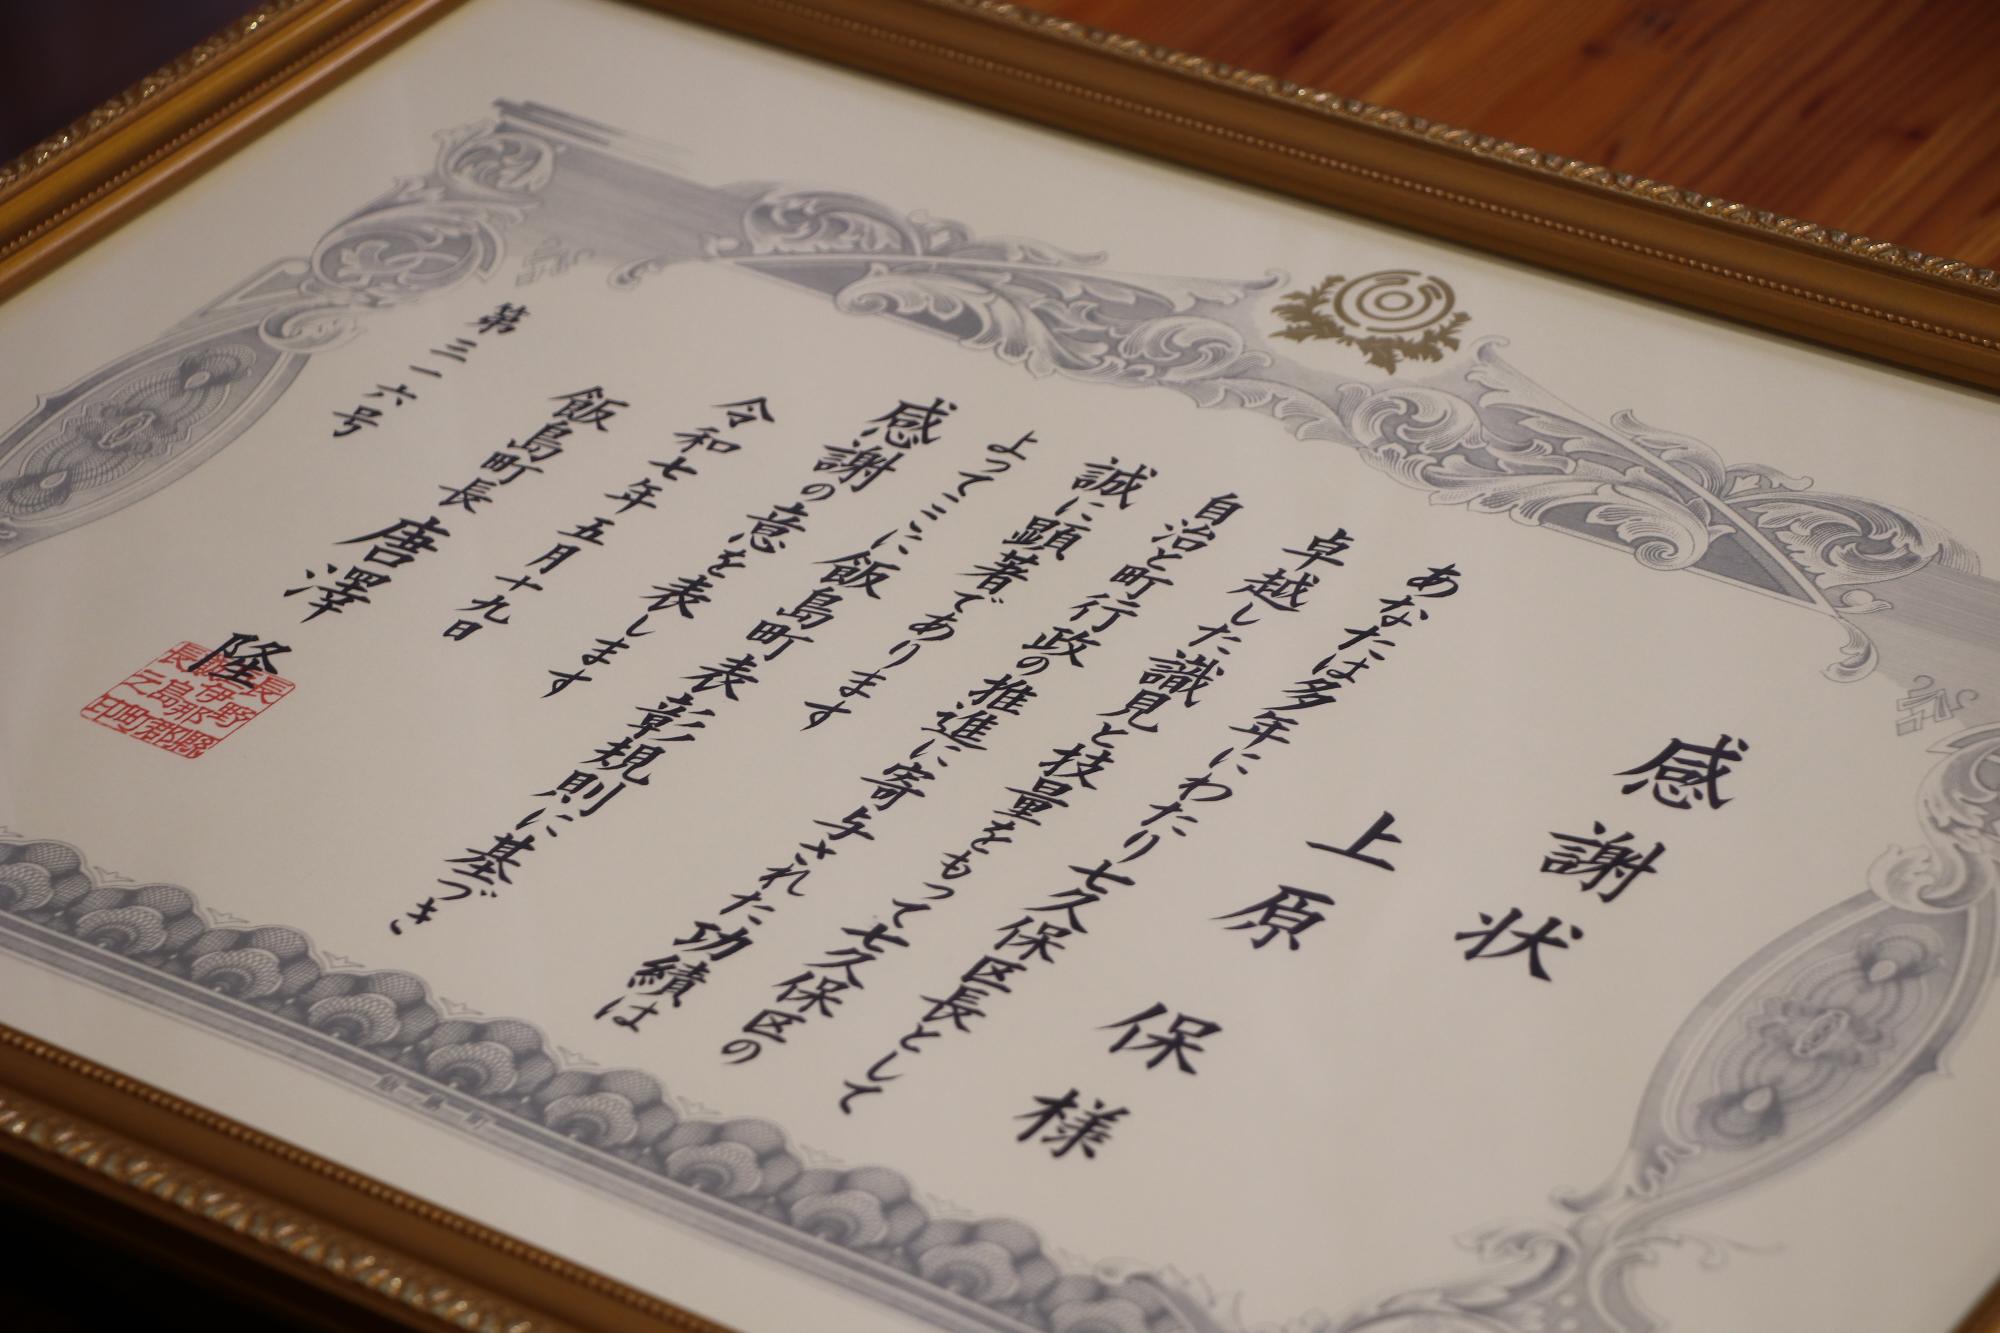 感謝状
上原 保 様
あなたは多年にわたり七久保区長として
卓越した識見と技量をもって七久保区の
自治と町行政の推進に寄与された功績は
誠に顕著であります
よってここに飯島町表彰規則に基づき
感謝の意を表します
令和七年五月十九日
飯島町長 唐澤 隆
第三一六号
長野縣
伊那郡
島町
長之印